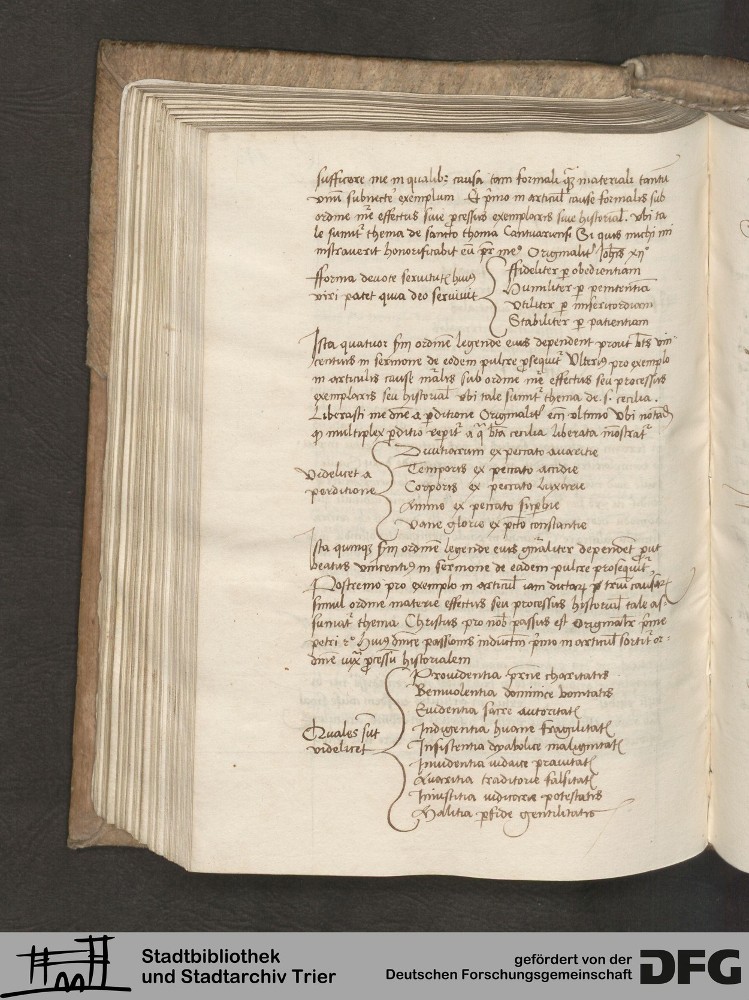 sufficere me in qualibꝫ causa tam formali qꝫ materiali tantū
vnū subnecte exemplum. Et pͥmo in articul cause formalis sub
ordine mē effectus siue ꝓcessus exemplaris siue historial. vbi ta
le sumit᷑ thema de sancto thoma Cantuarien͂ Si quis michi mi
nistrauerit honorificabit eū pr̄ meꝯ Originalit᷑ Joh̄is xijꝰ
fforma deuote seruitut huiꝯ
viri patet quia deo seruiuit
ffideliter ꝑ obedientiam
Humiliter ꝑ penitentiā
Vtiliter ꝑ misericordiam
Stabiliter ꝑ patientiam
Ista quatuor scͥm ordinē legende eius dependent prout bt̄s vin
centius in sermone de eodem pulcre ꝓsequit᷑ Vlteriꝯ pro exemplo
in articulis cause mālis sub ordine mē effectus seu processus
exemplaris seu historial vbi tale sumit᷑ thema de .s. cecilia.
Liberasti me dn̄e a ꝑditione Originalit᷑ ecci vltimo Vbi notād
multiplex ꝑditio reꝑit᷑ a qͣ bt̄a cecilia liberata mōstrat᷑
Videlicet a
perditione
Diuitiarum ex peccato auaritie
Temporis ex peccato accidie
Corporis ex peccato luxurie
Anime ex peccato suꝑbie
Vane glorie ex pctō constantie
Ista quinqꝫ scͥm ordinē legende eius gn̄aliter dependēt ꝓut
beatus vincentiꝯ in sermone de eadem pulcre prosequit᷑
Postremo pro exemplo in articul iam dictaꝝ triū causaꝝ
simul ordine materie effectus seu processus historial tale as-
sumit᷑ thema Christus pro nob passus est Originalr̄ pͥme
petri 2ꝰ Huiꝯ dn̄ice passionis inductin pͥmo in articul sortit᷑ or-
dinē iuxͣ ꝓcessū historialem
Quales sūt
videlicet
Prouidentia pr̄ne charitatis
Beniuolentia dominice bonitatis
Euidentia sacre autoritat
Indigentia huane fragilitat
Insistentia dyabolice malignitat
Inuidentia iudaice prauitat
Auaritia traditorie falsitat
Iniustitia iudicarie potestatis
Malitia ꝑfide gentilitatis
Stadtbibliothek
und Stadtarchiv Trier
gefördert von der
Deutschen Forschungsgemeinschaft
DFG